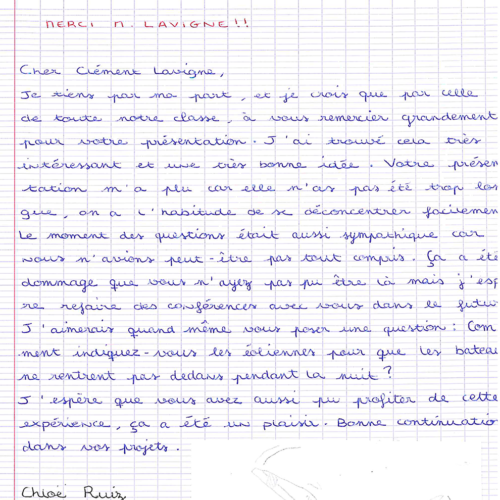 MERCI M. LAVIGNE!!
Cher Clément Lavigne,
Je tiens par ma part, et je crois que par celle
de toute notre classe, à vous remercier grandement
pour votre présentation. J'ai trouvé cela très
intéressant et une très bonne idée. Votre présen
tation m'a plu car elle n'as pas été trop lon
gue, on a l'habitude de se déconcentrer facilemen
Le moment des questions était aussi sympathique car
nous n'avions peut-être pas tout compris. Ça a été
dommage que vous n'ayez pas pu être là mais j'esp
re refaire des conférences avec vous dans le futur
J'aimerais quand même vous poser une question : Com
ment indiquez-vous les éoliennes pour que les bateau
ne rentrent pas dedans pendant la nuit ?
J'espère que vous avez aussi pu profiter de cette
expérience, ça a été un plaisir. Bonne continuatio
dans vos projets.
Chloë Ruiz